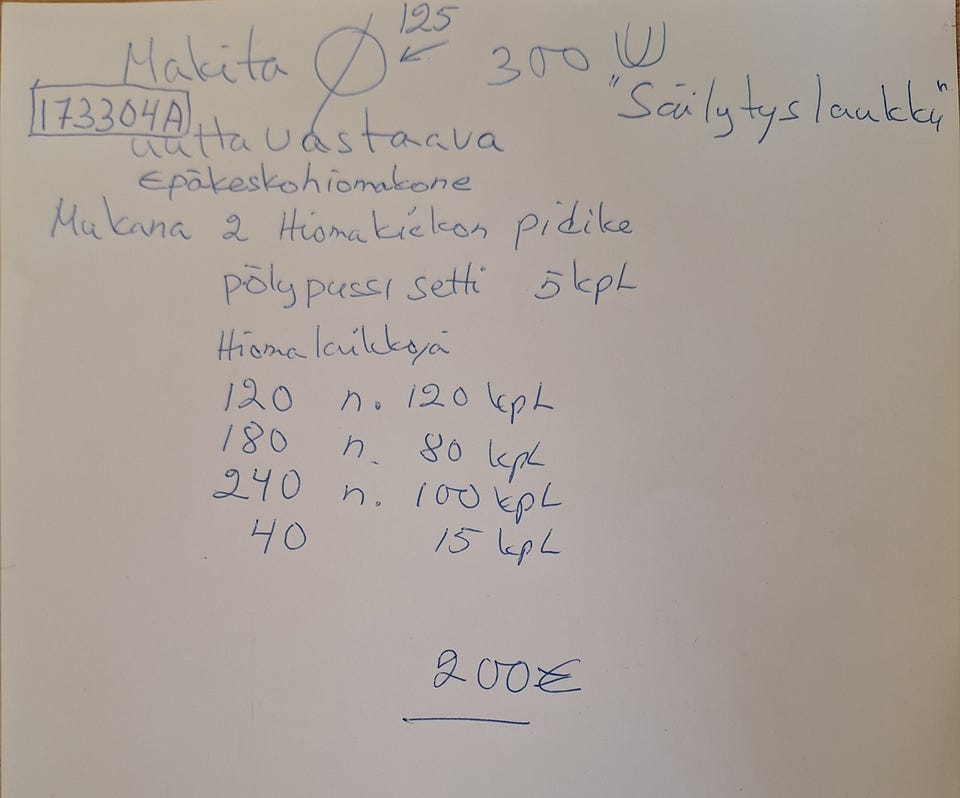 Makita Ø 125 300 W
"Säilytyslaukku"
173304A
uutta vastaava
Epäkeskohiomakone
Mukana 2 Hiomakiekon pidike
pölypussi setti 5 kpl
Hiomalaikkoja
120 n. 120 kpl
180 n. 80 kpl
240 n. 100 kpl
40 15 kpl
200€